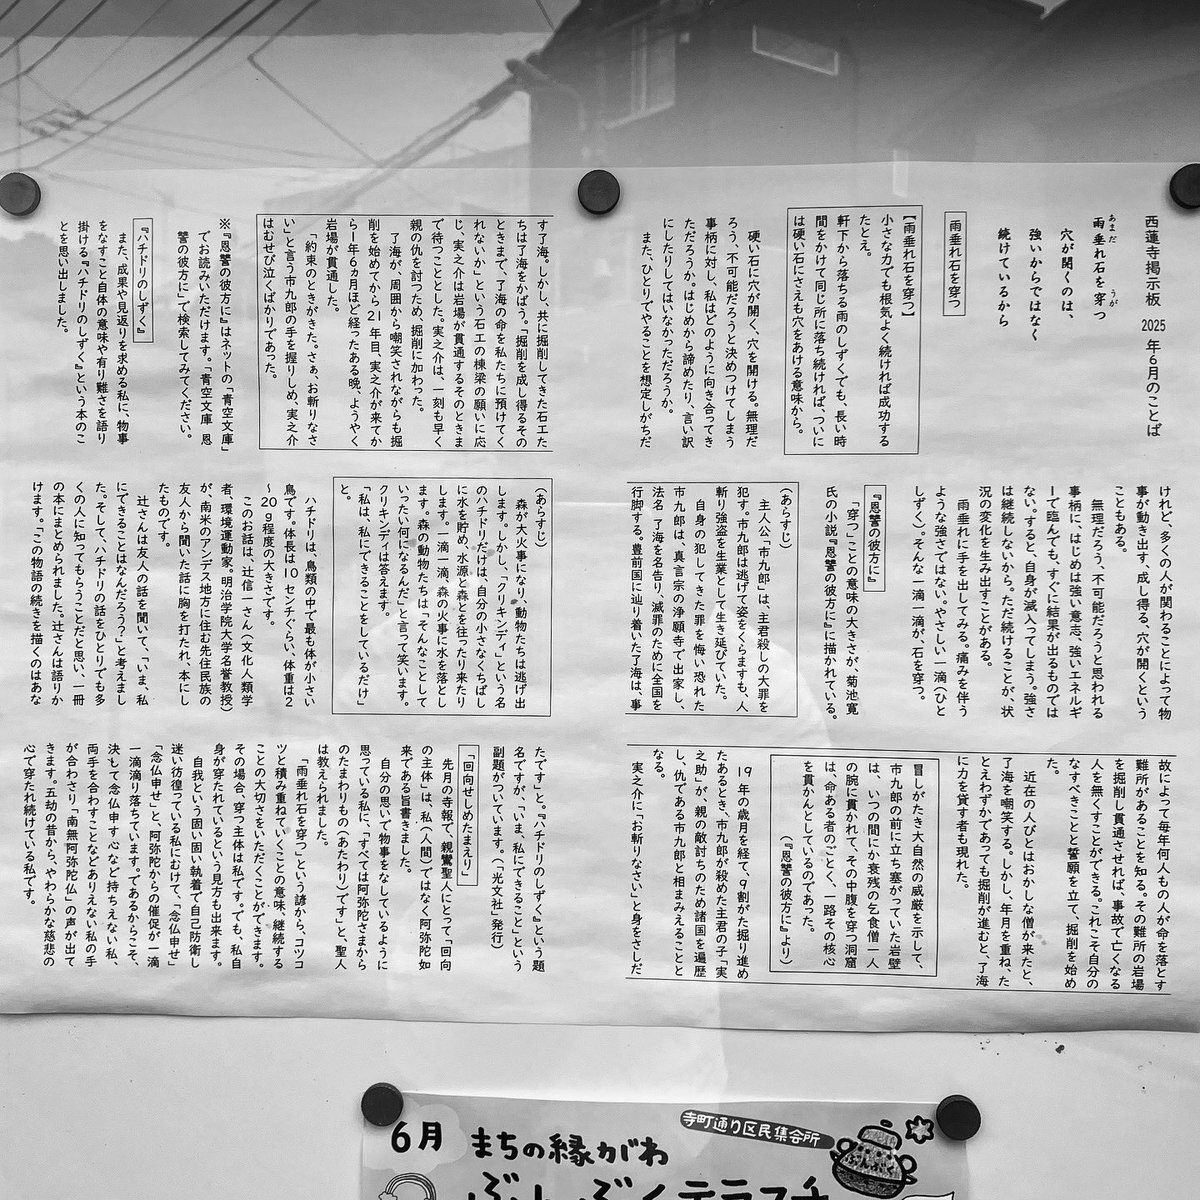 西蓮寺掲示板 2025年6月のことば
雨垂れ石を穿つ
あまだ うが
穴が開くのは、
強いからではなく
続けているから
雨垂れ石を穿つ
【雨垂れ石を穿つ】
小さな力でも根気よく続ければ成功する
たとえ。
軒下から落ちる雨のしずくでも、長い時
間をかけて同じ所に落ち続ければ、ついに
は硬い石にさえも穴をあける意味から。
硬い石に穴が開く、穴を開ける。無理だ
ろう、不可能だろうと決めつけてしまう
事柄に対し、私はどのように向き合ってき
ただろうか。はじめから諦めたり、言い訳
にしたりしてはいなかっただろうか。
また、ひとりでやることを想定しがちだ
けれど、多くの人が関わることによって物
事が動き出す、成し得る、穴が開くという
こともある。
無理だろう、不可能だろうと思われる
事柄に、はじめは強い意志、強いエネルギ
ーで臨んでも、すぐに結果が出るものでは
ない。すると、自身が滅入ってしまう。強さ
は継続しないから。ただ続けることが、状
況の変化を生み出すことがある。
雨垂れに手を出してみる。痛みを伴う
ような強さではない。やさしい一滴(ひと
しずく)。そんな一滴一滴が、石を穿つ。
『恩讐の彼方に』
「穿つ」ことの意味の大きさが、菊池寛
氏の小説『恩讐の彼方に』に描かれている。
(あらすじ)
主人公「市九郎」は、主君殺しの大罪を
犯す。市九郎は逃げて姿をくらますも、人
斬り強盗を生業として生き延びていた。
自身の犯してきた罪を悔い恐れた
市九郎は、真言宗の浄願寺で出家し、
法名 了海を名告り、滅罪のために全国を
行脚する。豊前国に辿り着いた了海は、事
故によって毎年何人もの人が命を落とす
難所があることを知る。その難所の岩場
を掘削し貫通させれば、事故で亡くなる
人を無くすことができる。これこそ自分の
なすべきことと誓願を立て、掘削を始め
た。
近在の人びとはおかしな僧が来たと、
了海を嘲笑する。しかし、年月を重ね、た
とえわずかであっても掘削が進むと、了海
に力を貸す者も現れた。
冒しがたき大自然の威厳を示して、
市九郎の前に立ち塞がっていた岩壁
は、いつの間にか衰残の乞食僧一人
の腕に貫かれて、その中腹を穿つ洞窟
は、命ある者のごとく、一路その核心
を貫かんとしているのであった。
(『恩讐の彼方に』より)
19年の歳月を経て、9割がた掘り進め
たあるとき、市九郎が殺めた主君の子「実
之助」が、親の敵討ちのため諸国を遍歴
し、仇である市九郎と相まみえることと
なる。
実之介に「お斬りなさい」と身をさしだ
す了海。しかし、共に掘削してきた石工た
ちは了海をかばう。「掘削を成し得るその
ときまで、了海の命を私たちに預けてく
れないか」という石工の棟梁の願いに応
じ、実之介は岩場が貫通するそのときま
で待つこととした。実之介は、一刻も早く
親の仇を討つため、掘削に加わった。
了海が、周囲から嘲笑されながらも掘
削を始めてから21年目、実之介が来てか
ら1年6ヵ月ほど経ったある晩、ようやく
岩場が貫通した。
「約束のときがきた。さぁ、お斬りなさ
い」と言う市九郎の手を握りしめ、実之介
はむせび泣くばかりであった。
※『恩讐の彼方に』はネットの「青空文庫」
でお読みいただけます。「青空文庫 恩
讐の彼方に」で検索してみてください。
『ハチドリのしずく』
また、成果や見返りを求める私に、物事
をなすこと自体の意味や有り難さを語り
掛ける『ハチドリのしずく』という本のこ
とを思い出しました。
(あらすじ)
森が大火事になり、動物たちは逃げ出
します。しかし、「クリキンディ」という名
のハチドリだけは、自分の小さなくちばし
に水を貯め、水源と森とを往ったり来たり
します。一滴一滴、森の火事に水を落とし
ます。森の動物たちは「そんなことして
いったい何になるんだ」と言って笑います。
クリキンディは答えます。
「私は、私にできることをしているだけ」
と。
ハチドリは、鳥類の中で最も体が小さい
鳥です。体長は10センチぐらい、体重は2
～20g程度の大きさです。
このお話は、辻信一さん(文化人類学
者、環境運動家。明治学院大学名誉教授)
が、南米のアンデス地方に住む先住民族の
友人から聞いた話に胸を打たれ、本にし
たものです。
辻さんは友人の話を聞いて、「いま、私
にできることはなんだろう?」と考えまし
た。そして、ハチドリの話をひとりでも多
くの人に知ってもらうことだと思い、一冊
の本にまとめられました。辻さんは語りか
けます。「この物語の続きを描くのはあな
たです」と。『ハチドリのしずく』という題
名ですが、「いま、私にできること」という
副題がついています。(光文社 発行)
「回向せしめたまえり」
先月の寺報で、親鸞聖人にとって「回向
の主体」は、私(人間)ではなく阿弥陀如
来である旨書きました。
自分の思いで物事をなしているように
思っている私に、「すべては阿弥陀さまから
のたまわりもの(あたわり)です」と、聖人
は教えられました。
「雨垂れ石を穿つ」という諺から、コツコ
ツと積み重ねていくことの意味、継続する
ことの大切さをいただくことができます。
その場合、穿つ主体は私です。でも、私自
身が穿たれているという見方も出来ます。
自我という固い固い執着で自己防衛し
迷い彷徨っている私にむけて、「念仏申せ」
「念仏申せ」と、阿弥陀からの催促が一滴
一滴滴り落ちています。であるからこそ、
決して念仏申す心など持ちえない私、
両手を合わすことなどありえない私の手
が合わさり「南無阿弥陀仏」の声が出て
きます。五劫の昔から、やわらかな慈悲の
心で穿たれ続けている私です。
寺町通り区民集会所
6月 まちの縁がわ
ぶんぶくテラスチ
ぶんぶく